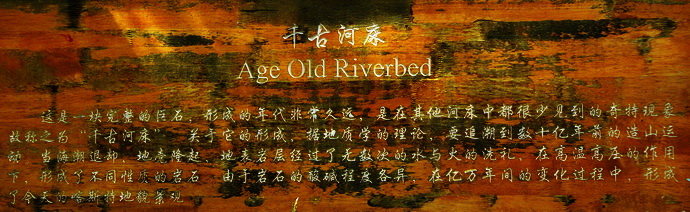 千古河床
Age Old Riverbed
这是一块完整的巨石，形成的年代非常久远，是在其他河床中都很少见到的奇特现象
故称之为“千古河床”。关于它的形成，据地质学的理论，要追溯到数十亿年前的造山运
动，当海潮退却，地态隆起，地表岩层经过了无数次的水与火的洗礼，在高温高压的作用
下，形成了不同性质的岩石，由于岩石的酸碱程度各异，在亿万年间的变化过程中，形成
了今天的喀斯特地貌景观